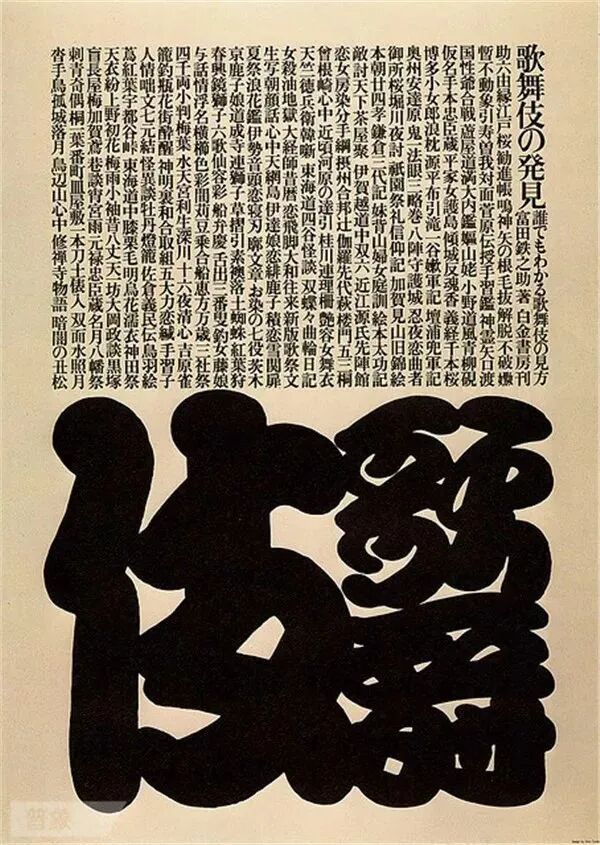 歌舞伎の発見 誰でもわかる歌舞伎の見方
富田鉄之助著 白金書房刊
助六由縁江戸桜 勧進帳 鳴神 矢の根 毛抜 解脱 不破 嫐
暫 不動 象引 寿曽我対面 菅原伝授手習鑑 神霊矢口渡
国性爺合戦 蘆屋道満大内鑑 嫗山姥 小野道風青柳硯
仮名手本忠臣蔵 平家女護島 傾城反魂香 義経千本桜
博多小女郎浪枕 源平布引滝 一谷嫩軍記 壇浦兜軍記
奥州安達原 鬼一法眼三略巻 八陣守護城 忍夜恋曲者
御所桜堀川夜討 祇園祭礼信仰記 加賀見山旧錦絵
本朝廿四孝 鎌倉三代記 妹背山婦女庭訓 絵本太功記
敵討天下茶屋聚 伊賀越道中双六 近江源氏先陣館
恋女房染分手綱 摂州合邦辻 伽羅先代萩 楼門五三桐
曽根崎心中 近頃河原の達引 桂川連理柵 艶容女舞衣
天竺徳兵衛韓噺 東海道四谷怪談 双蝶々曲輪日記
女殺油地獄 大経師昔暦 恋飛脚大和往来 新版歌祭文
生写朝顔話 心中天網島 伊達娘恋緋鹿子 積恋雪関扉
夏祭浪花鑑 伊勢音頭恋寝刃 廓文章 お染の七役 茨木
京鹿子娘道成寺 連獅子 草摺引 素襖落 土蜘 蛛 紅葉狩
春興鏡獅子 六歌仙容彩 船弁慶 舌出三番叟 釣女 藤娘
与話情浮名横櫛 色彩間苅豆 乗合船恵方万歳 三社祭
四千両小判梅葉 水天宮利生深川 十六夜清心 吉原雀
籠釣瓶花街酔醒 神明裏和合取組 五大力恋緘 手習子
人情噺文七元結 怪異談牡丹燈籠 佐倉義民伝 鳥羽絵
蔦紅葉宇都谷峠 東海道中膝栗毛 明烏花濡衣 神田祭
天衣紛上野初花 梅雨小袖昔八丈 天一坊大岡政談 黒塚
盲長屋梅加賀鳶 巷談宵宮雨 元禄忠臣蔵 名月八幡祭
刺青奇偶 桐一葉 番町皿屋敷 一本刀土俵入 双面水照月
沓手鳥孤城落月 鳥辺山心中 修禅寺物語 暗闇の丑松
歌舞
伎